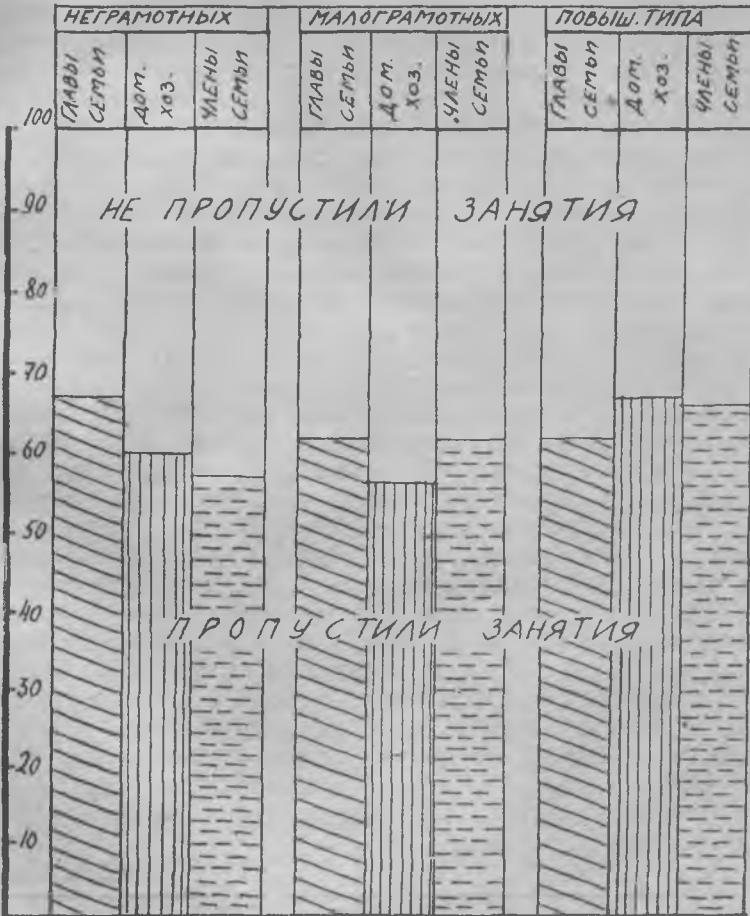 НЕГРАМОТНЫХ
МАЛОГРАМОТНЫХ
ПОВЫШ. ТИПА
ГЛАВЫ
СЕМЬИ
ДОМ.
ХОЗ.
ЧЛЕНЫ
СЕМЬИ
ГЛАВЫ
СЕМЬИ
ДОМ.
ХОЗ.
ЧЛЕНЫ
СЕМЬИ
ГЛАВЫ
СЕМЬИ
ДОМ.
ХОЗ.
ЧЛЕНЫ
СЕМЬИ
100
90
НЕ ПРОПУСТИЛИ ЗАНЯТИЯ
80
70
60
50
40
ПРОПУСТИЛИ ЗАНЯТИЯ
30
20
10